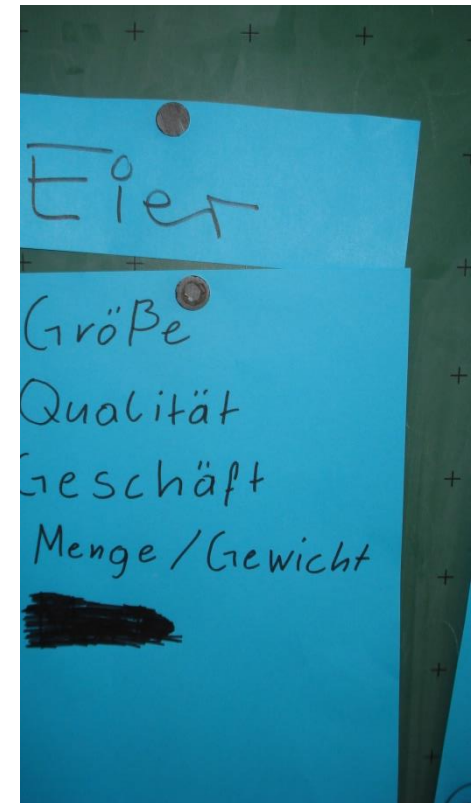 Eier
Größe
Qualität
Geschäft
Menge/Gewicht